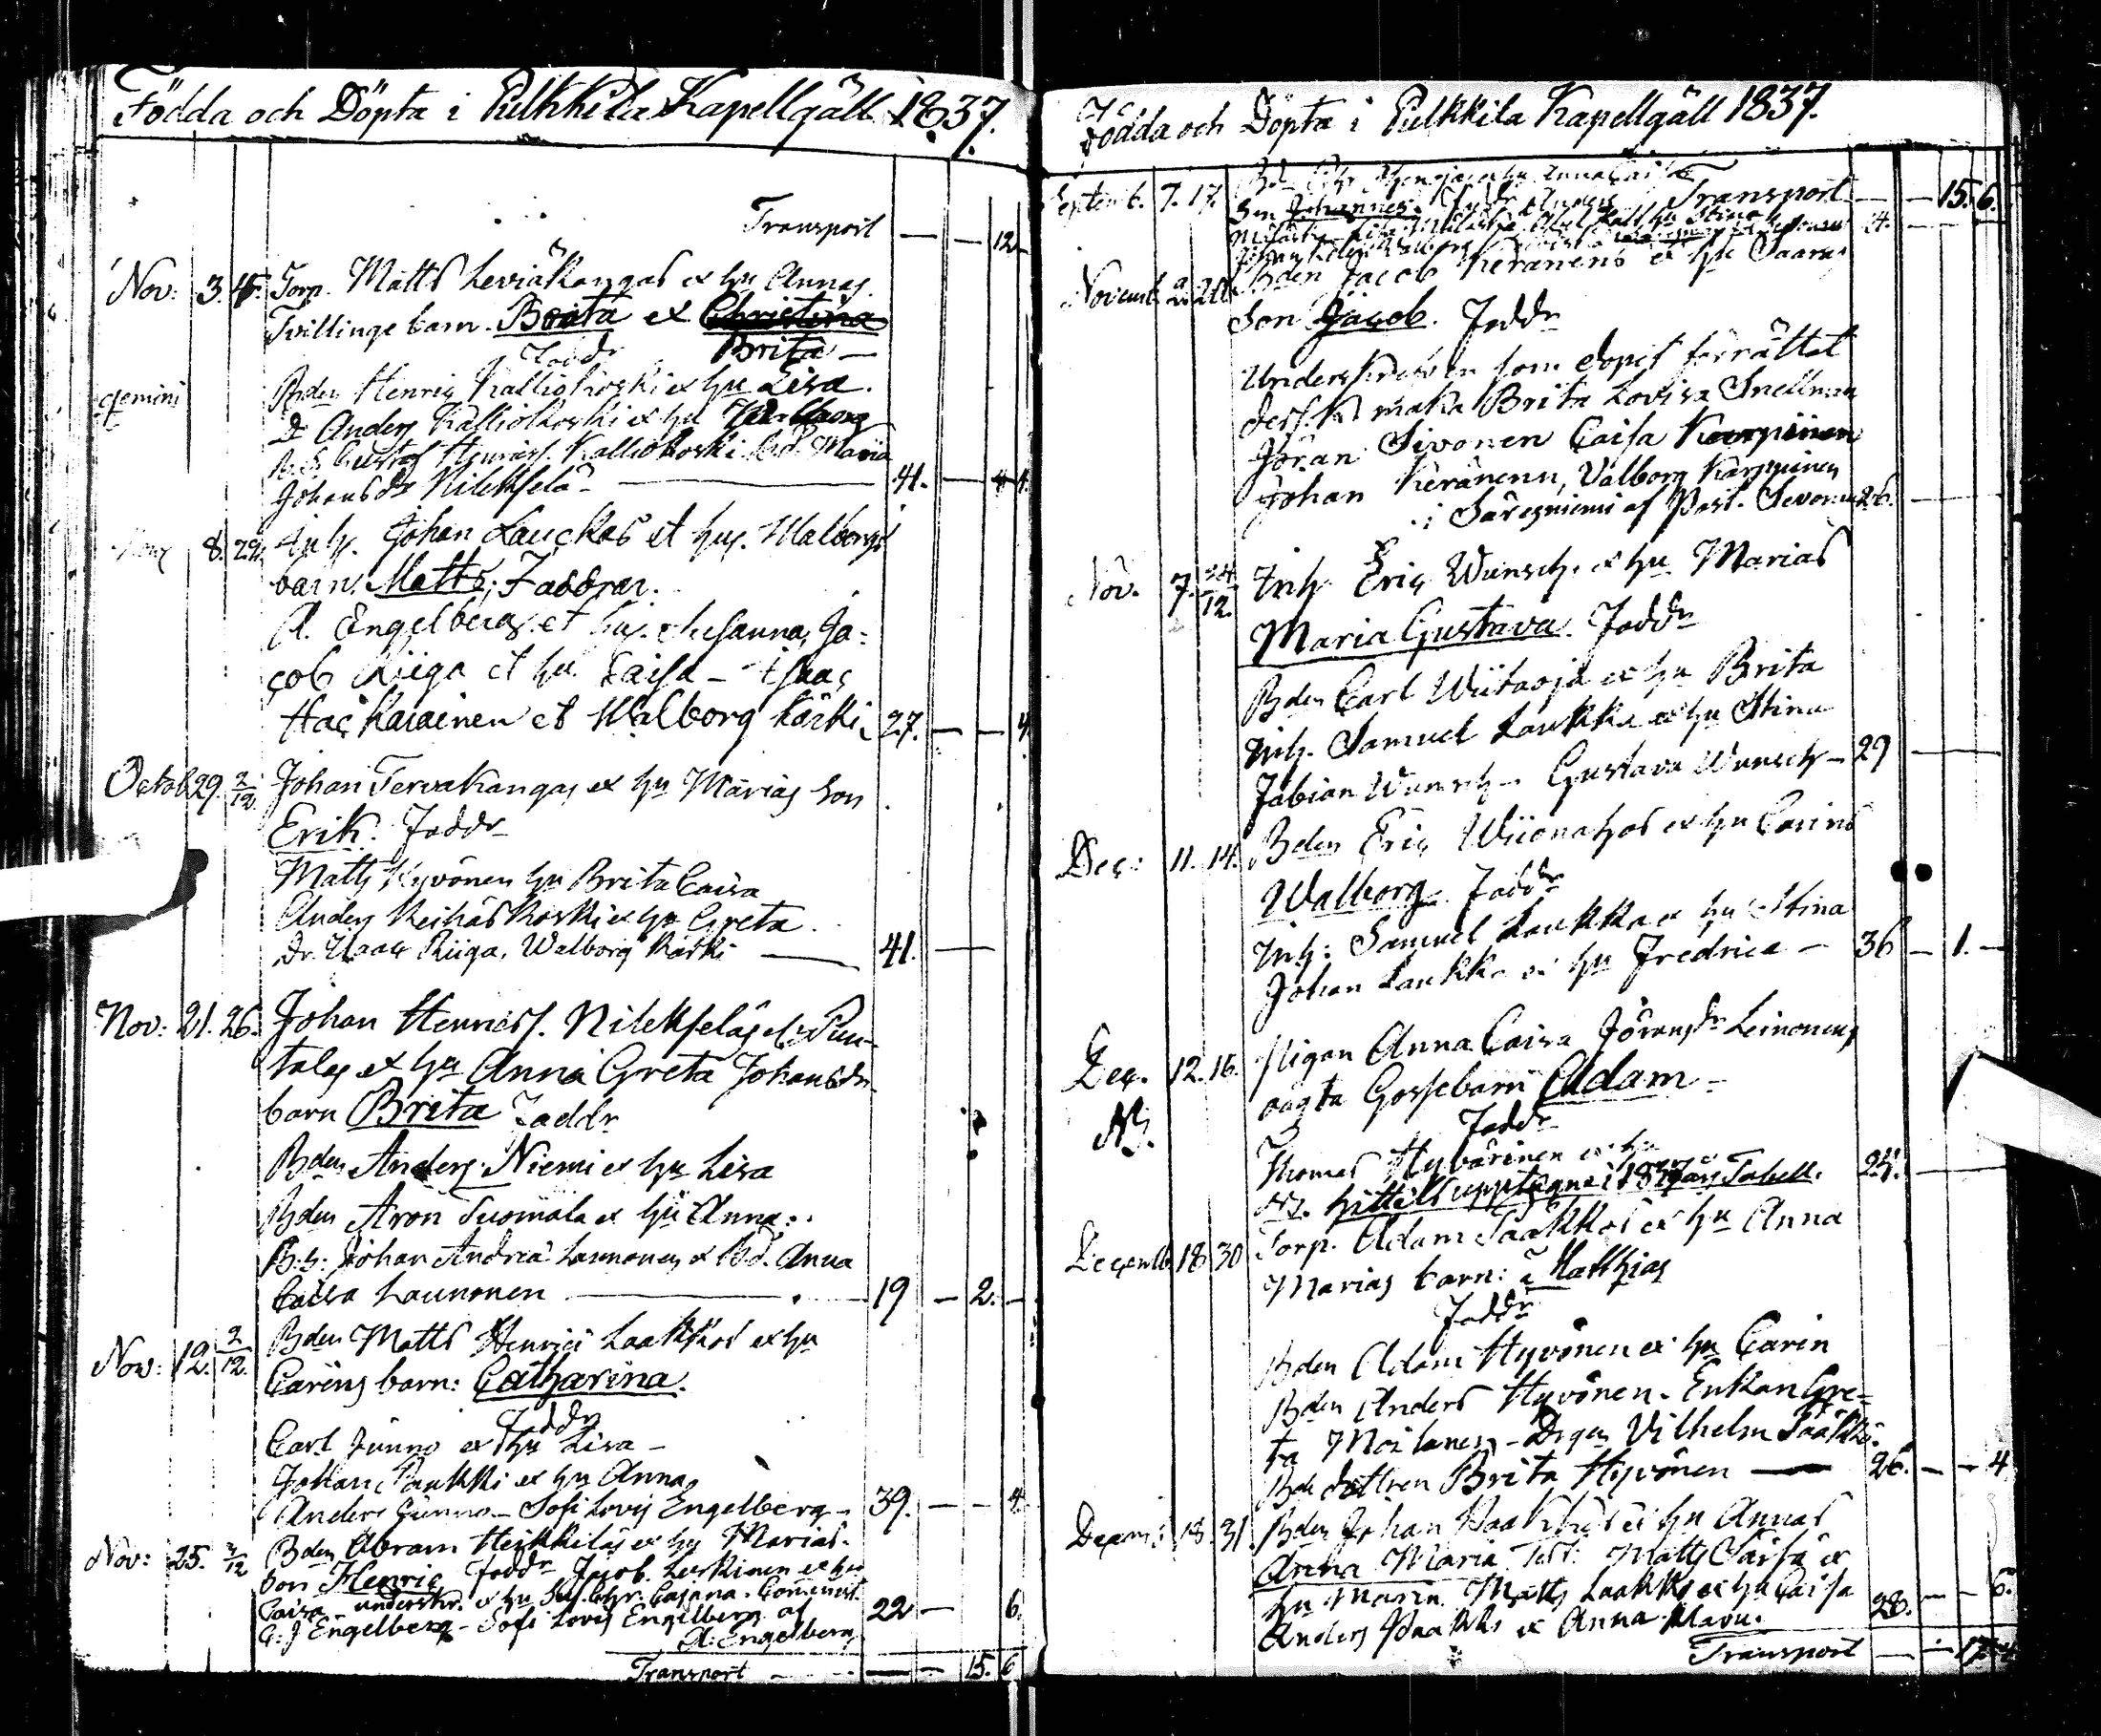 Födda och Döpta i Pulkkila Kapellgäll 1837.
Transport — — 12 —
Nov: 3. 15. Torp. Matts Leviäkangas et hu Annas
Tvillinge barn. Beata et Christina
Faddr Brita —
gemini Bden Henric Kalliokoski et hu Lisa.
Dr Anders Kalliokoski et hu Walborg
B.S. Gustaf Henricss. Kalliokoski Bd. Maria
Johansdr Nilekselä — 41. — 4
8. 29. Inh. Johan Lauckas et hus. Walborgs
barn. Matts; Faddrar.
A. Engelberg et hus. Susanna, Ja=
cob Riiga et hu Caisa — Isaac
Hackarainen et Walborg Kärki 27. — — 4.
Octob. 29. 2/12 Johan Tervakangas et hu Marias Son
Erik. Faddr
Matts Hyvönen hu Brita Caisa
Anders Keihäskoski et hu Greta.
Dr. Isaac Riiga, Walborg Kärki — 41. —
Nov: 21. 26. Johan Henricss. Nilekseläs el. Puu-
talas et hu Anna Greta Johansdrs
barn Brita Faddr
Bden Anders Niemi et hu Lisa
Bden Aron Tuomala et hu Anna.
B.S: Johan Andreä Launonen et Bd. Anna
Caisa Launonen — 19 — 2. —
Nov: 12. 2/12. Bden Matts Henrici Laakkos et hu
Carins barn: Catharina.
Faddr
Carl Junno et hu Lisa —
Johan Paukki et hu Anna
Anders Junno — Sofi Lovis Engelberg — 39. — — 4.
Nov: 25. 3/12 Bden Abram Heikkiläs et hu Marias
son Henric Faddr Jacob Leskinen et hu
Caisa underskr. et hu Sus. Chr. Cajana. Comminist.
G: J Engelberg — Sofi Lovis Engelberg af 22 — 6.
A: Engelberg
Transport — — 15. 6
Födda och Döpta i Pulkkila Kapellgäll 1837.
Septemb. 7. 17.
Son Johannes. Transport — — 15. 6.
24. —
Novemb. 2. 20. Bden Jacob Keränens et hu Saaras
Son Jacob. Faddr
Underskrefven som dopet förrättat
dess k. maka Brita Lovisa Snellman
Jöran Sivonen Caisa Karppinen
Johan Keränenn, Valborg Karppinen
i Säresniemi af Past. 26. —
Nov. 7. 24/12. Inh Eric Wunsch. et hu Marias
Maria Gustava. Faddr
Bden Carl Wiitaoja et hu Brita
Inh. Samuel Laukka et hu Stina
Fabian Wunsch — Gustava Wunsch — 29 —
Dec: 11. 14. Bden Eric Wiionahos et hu Carins
Walborg. Faddr
Inh: Samuel Laukka et hu Stina
Johan Laukka et hu Fredrica — 36 — 1. —
Dec. 12. 16. Pigan Anna Caisa Jöransdr Leinonens
oägta Gossebarn Adam —
NB. Faddr
Thomas Hyvärinen et hu
NB. hittills upptagne i 1837 års Tabell. 24. —
Decemb. 18 30 Torp. Adam Paakkos et hu Anna
Marias barn: Matthias
Faddr
Bden Adam Hyvönen et hu Carin
Bden Anders Hyvönen. Enkan Gre=
ta Moilanen — Drgen Vilhelm Paakko.
Bde dottren Brita Hyvönen — 26. — — 4
Decem: 18. 31. Bden Johan Paakkos et hu Annas
Anna Maria Test: Matts et
hu Maria Matts Laakko et hu Caisa
Anders Paakko et Anna 28. — — 6.
Transport — — 17. 4